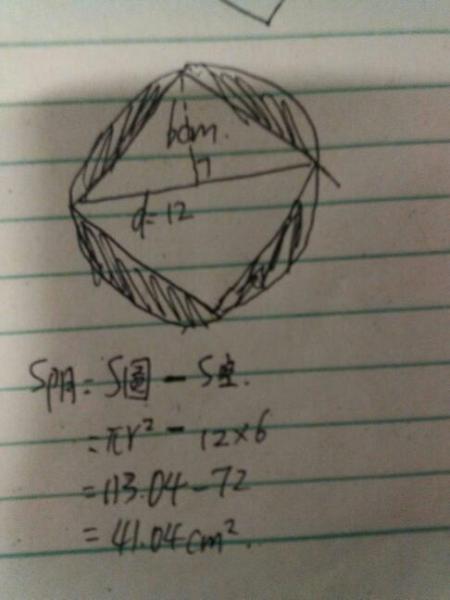 6dm.
d=12
S阴=S圆-S空.
=πr²-12×6
=113.04-72
=41.04cm².